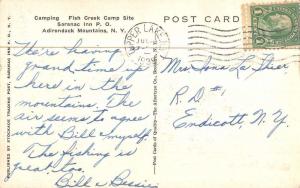 Camping Fish Creek Camp Site
Saranac Inn P. O.
Adirondack Mountains, N. Y.
POST CARD
There having a
grand time up
here in the
mountains. The
air seems to agree
with Bill & myself.
The fishing is
great too.
Bill & Bessie
Mrs. Iona L.
R. D. #1
Endicott, N.Y.
PUBLISHED BY STOCKADE TRADING POST, SARANAC INN P. O., N. Y.
Post Cards of Quality. — The Albertype Co., Brooklyn, N. Y.